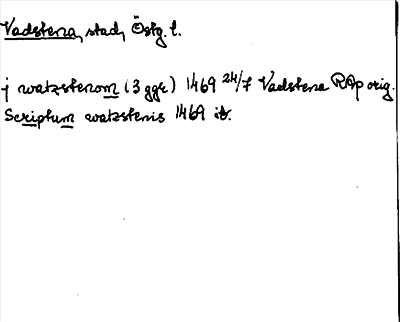 Vadstena, stad, Östg. l.
j watzstenom (3 ggr) 1469 24/7 Vadstena RAp orig.
Scriptum watzstenis 1469 ib.